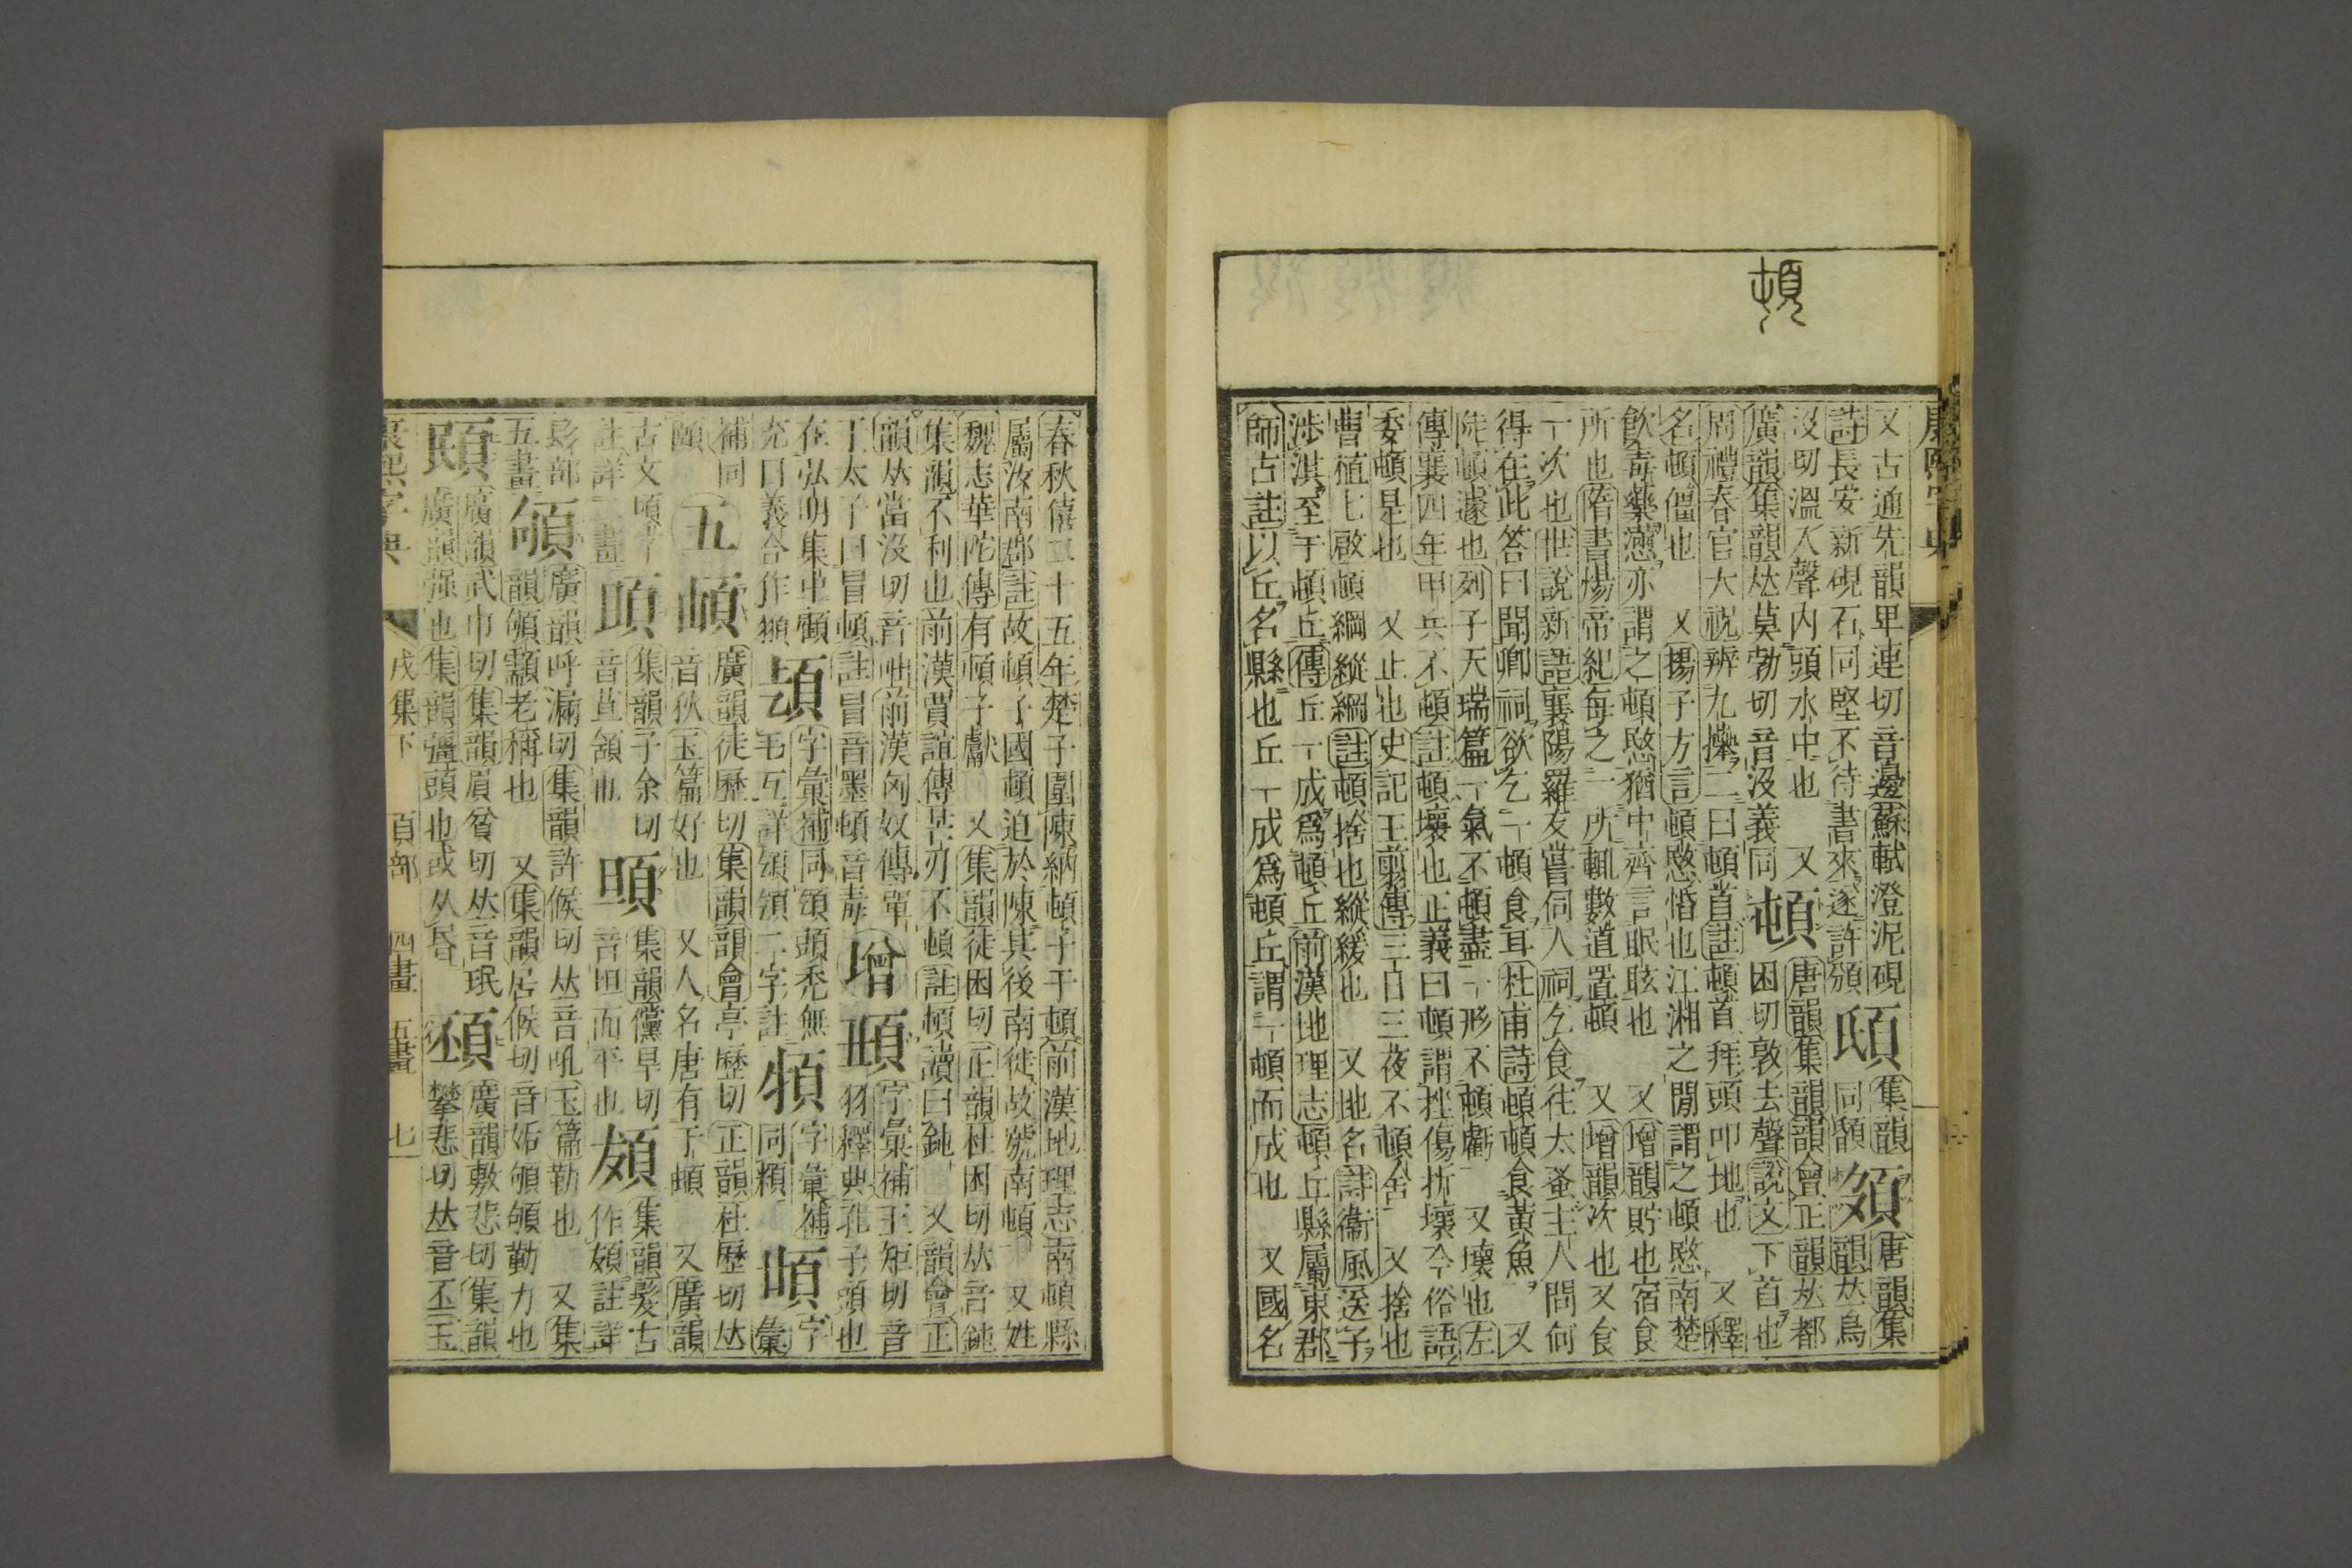 頓
康熙字典
又古通先韻卑連切音邊蘇軾澄泥硯
詩長安新硯石同堅不待書來遂許頒
𩑠
集韻
同頟
𩑦
唐韻集
韻𠀤烏
沒切溫入聲內頭水中也 又
廣韻集韻𠀤莫勃切音沒義同
頓
唐韻集韻韻會正韻𠀤都
困切敦去聲說文下首也
周禮春官大祝辨九𢷎二曰頓首註頓首拜頭叩地也 又釋
名頓僵也 又揚子方言頓愍惛也江湘之閒謂之頓愍南楚
飮毒藥懣亦謂之頓愍猶中齊言眠眩也 又增韻貯也宿食
所也隋書煬帝紀每之一所輒數道置頓 又增韻次也又食
一次也世說新語襄陽羅友嘗伺人祠乞食往太蚤主人問何
得在此答曰聞卿祠欲乞一頓食耳杜甫詩頓頓食黃魚 又
陡頓遽也列子天瑞篇一氣不頓盡一形不頓虧 又壞也左
傳襄四年甲兵不頓註頓壞也正義曰頓謂挫傷折壞今俗語
委頓是也 又止也史記王翦傳三日三夜不頓舍 又捨也
曹植七啟頓綱縱網註頓捨也縱緩也 又地名詩衞風送子
涉淇至于頓丘傳丘一成爲頓丘前漢地理志頓丘縣屬東郡
師古註以丘名縣也丘一成爲頓丘謂一頓而成也 又國名
春秋僖二十五年楚子圍陳納頓子于頓前漢地理志南頓縣
屬汝南郡註故頓子國頓迫於陳其後南徙故號南頓 又姓
魏志華陀傳有頓子獻 又集韻徒困切正韻杜困切𠀤音鈍
集韻不利也前漢賈誼傳芒刃不頓註頓讀曰鈍 又韻會正
韻𠀤當沒切音咄前漢匈奴傳單
于太子曰冒頓註冒音墨頓音毒
增
𩒀
字彙補王矩切音
𦏁釋典孔子頭也
在弘明集中𩕳
充曰義合作頨
𩑭
字彙補同頌頭禿無
毛互詳頌頒二字註
𩑮
字彙補
同頪
𩑯
字彙
補同
頤
五
頔
廣韻徒歷切集韻韻會亭歷切正韻杜歷切𠀤
音狄玉篇好也 又人名唐有于頔 又廣韻
古文𩑒字
註詳一畫
䪶
集韻子余切
音苴頷也
䪰
集韻儻旱切
音坦面平也
䫂
集韻髮古
作䫂註詳
髟部
五畫
䪷
廣韻呼漏切集韻許候切𠀤音吼玉篇勤也 又集
韻䪷顬老稱也 又集韻居候切音姤䪷䪷勤力也
䪸
廣韻武巾切集韻眉貧切𠀤音珉
廣韻强也集韻彊頭也或从昬
䫊
廣韻敷悲切集韻
攀悲切𠀤音丕玉
康熙字典 戌集下 頁部 四畫 五畫 七